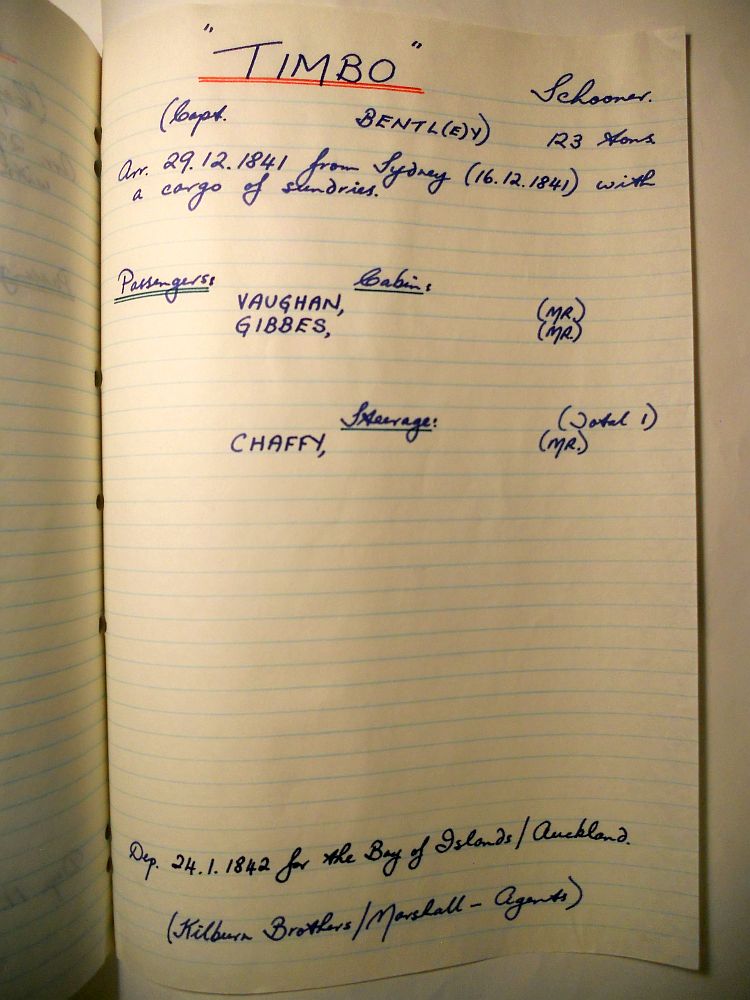 "TIMBO"
Schooner.
(Capt. BENTL(E)Y) 123 tons
Arr. 29.12.1841 from Sydney (16.12.1841) with
a cargo of sundries.
Passengers: Cabin:
VAUGHAN, (MR.)
GIBBES, (MR.)
Steerage: (Total 1)
CHAFFY, (MR.)
Dep. 24.1.1842 for the Bay of Islands/Auckland.
(Kilburn Brothers/Marshall - Agents)